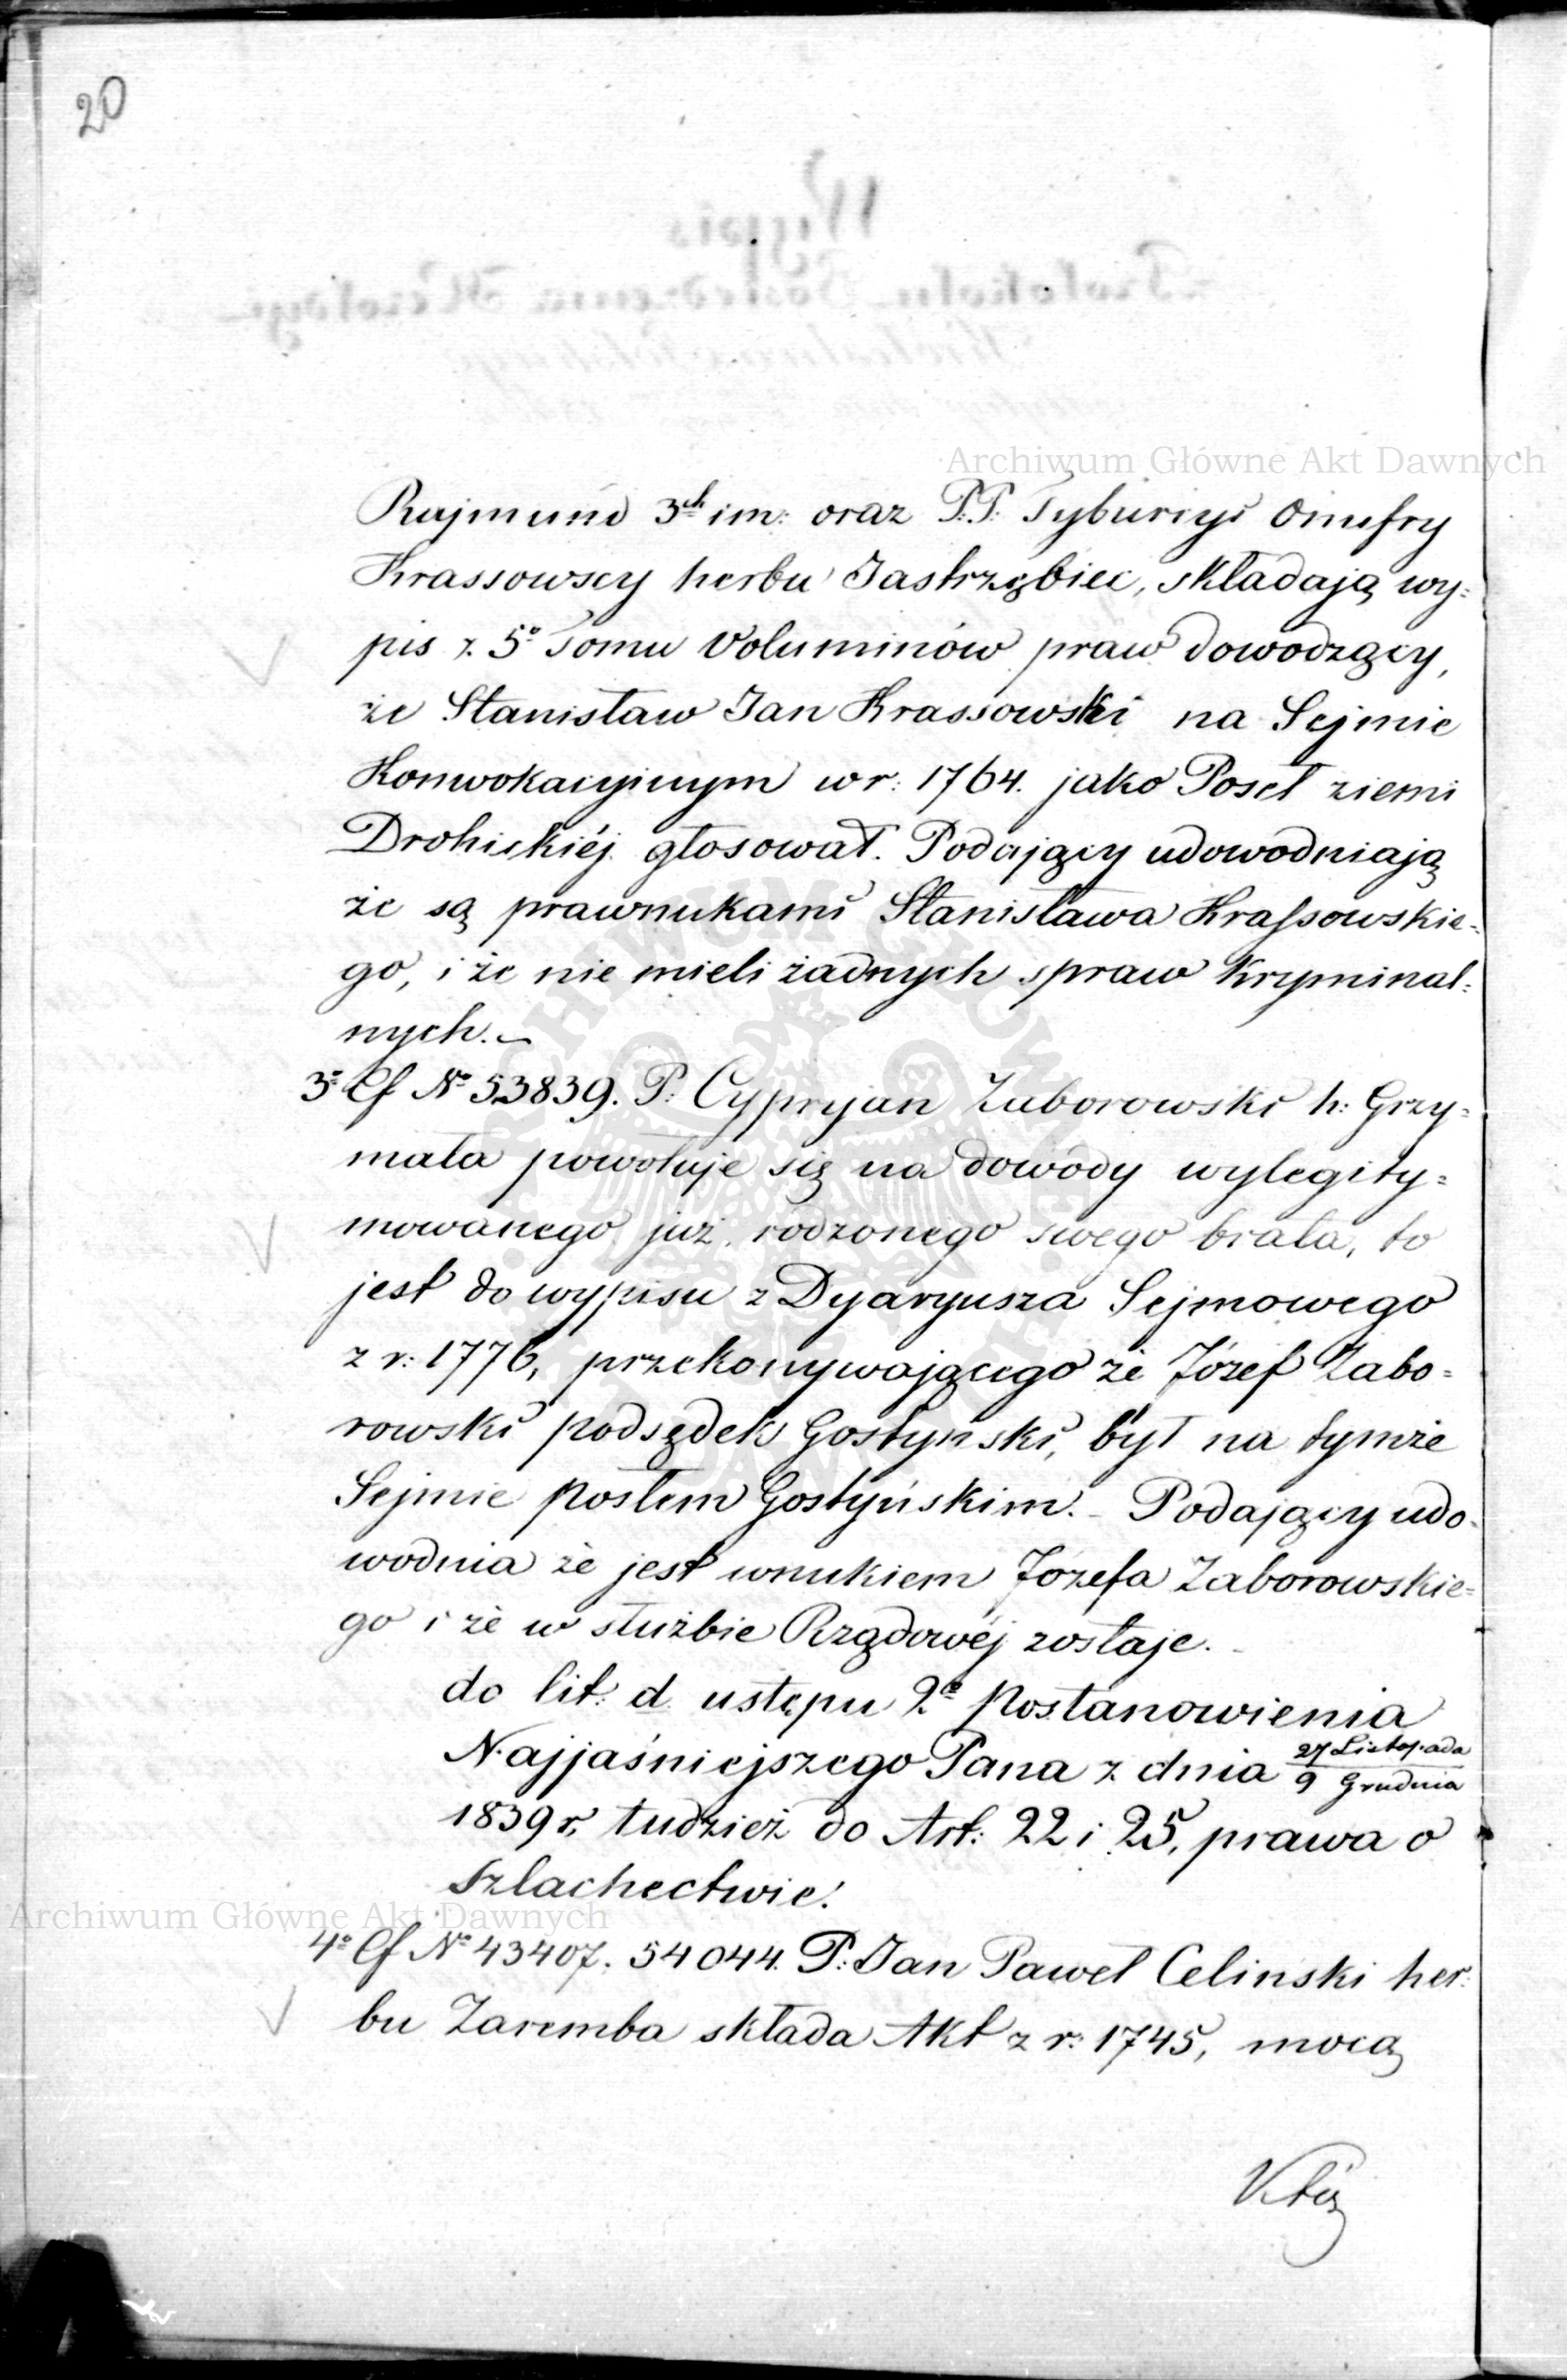 20
Archiwum Główne Akt Dawnych
Rajmund 3ch im: oraz P.P. Tyburcyi Onufry
Krassowscy herbu Jastrzębiec, składają wy=
pis z 5o Tomu Voluminów praw dowodzący,
że Stanisław Jan Krassowski na Sejmie
Konwokacyjnym w r: 1764. jako Poseł ziemi
Drohickiéj głosował. Podający udowodniają
że są prawnukami Stanisława Krassowskie=
go, i że nie mieli żadnych spraw Kryminal=
nych.
3o Cf No 53839. P: Cypryjan Zaborowski h: Grzy=
mała powołuje się na dowody wylegity=
mowanego już rodzonego swego brata, to
jest do wypisu z Dyaryusza Sejmowego
z r: 1776, przekonywającego że Józef Zabo=
rowski podsędek Gostyński, był na tymże
Sejmie posłem Gostyńskim. - Podający udo=
wodnia że jest wnukiem Józefa Zaborowskie=
go i że w służbie Rządowéj zostaje. -
do lit: d. ustępu 2o Postanowienia
Najjaśniejszego Pana z dnia 27 Listopada
9 Grudnia
1839 r, tudzież do Art: 22 i 25, prawa o
Szlachectwie.
Archiwum Główne Akt Dawnych
4o Cf No 43407. 54044. P: Jan Paweł Celinski her=
bu Zaremba składa Akt z r: 1745, mocą